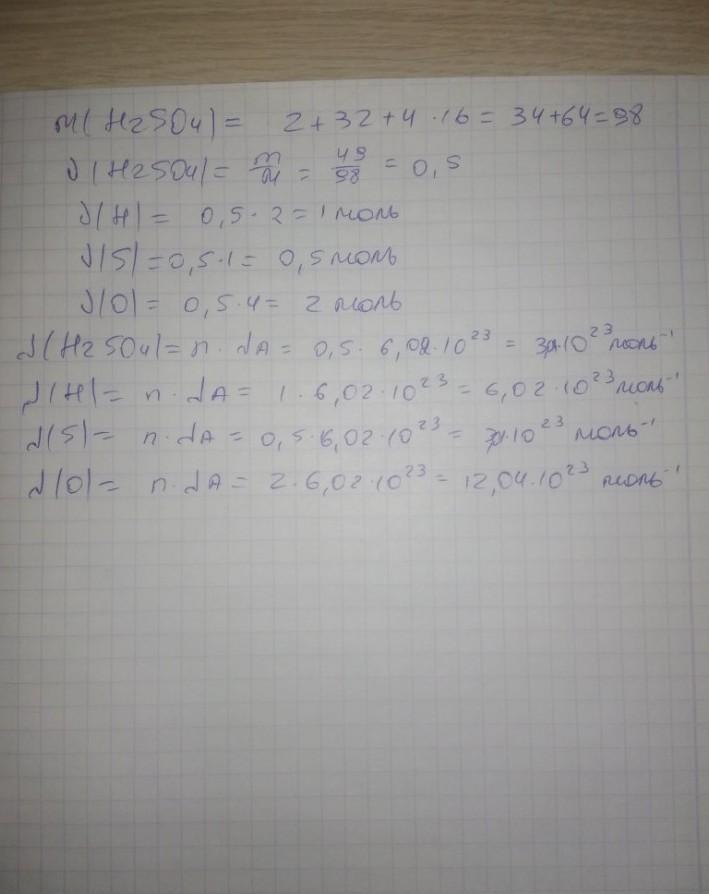 M(H2SO4) = 2+32+4·16 = 34+64=98
J(H2SO4) = m/M = 49/98 = 0,5
J(H) = 0,5·2=1 моль
J(S)=0,5·1= 0,5 моль
J(O)= 0,5·4= 2 моль
N(H2SO4)= n·NA = 0,5·6,02·10²³ = ·10²³ моль⁻¹
N(H)= n·NA = 1·6,02·10²³ = 6,02·10²³ моль⁻¹
N(S)= n·NA = 0,5·6,02·10²³ = ·10²³ моль⁻¹
N(O)= n·NA = 2·6,02·10²³ = 12,04·10²³ моль⁻¹